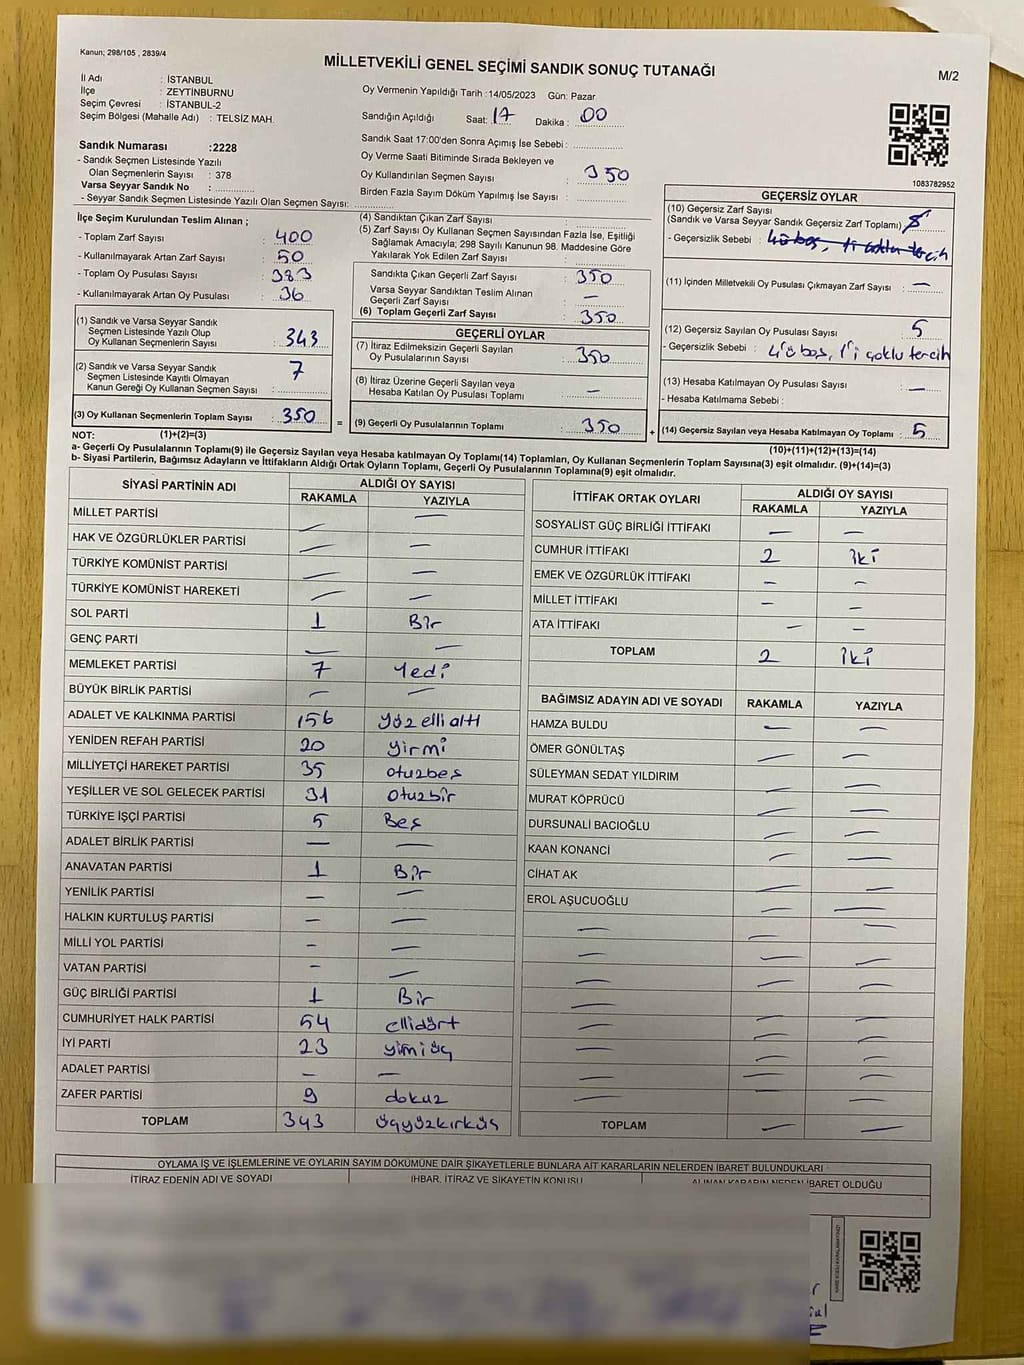 Kanun; 298/105 , 2839/4
MİLLETVEKİLİ GENEL SEÇİMİ SANDIK SONUÇ TUTANAĞI
M/2
İl Adı : İSTANBUL
İlçe : ZEYTİNBURNU
Seçim Çevresi : İSTANBUL-2
Seçim Bölgesi (Mahalle Adı) : TELSİZ MAH.
Oy Vermenin Yapıldığı Tarih :14/05/2023 Gün: Pazar
Sandığın Açıldığı Saat: 17 Dakika : 00
Sandık Saat 17:00'den Sonra Açımış İse Sebebi :
Sandık Numarası :2228
- Sandık Seçmen Listesinde Yazılı
Olan Seçmenlerin Sayısı : 378
Varsa Seyyar Sandık No :
- Seyyar Sandık Seçmen Listesinde Yazılı Olan Seçmen Sayısı:
Oy Verme Saati Bitiminde Sırada Bekleyen ve
Oy Kullandırılan Seçmen Sayısı : 350
Birden Fazla Sayım Döküm Yapılmış İse Sayısı :
1083782952
İlçe Seçim Kurulundan Teslim Alınan ;
- Toplam Zarf Sayısı : 400
- Kullanılmayarak Artan Zarf Sayısı : 50
- Toplam Oy Pusulası Sayısı : 383
- Kullanılmayarak Artan Oy Pusulası : 36
(1) Sandık ve Varsa Seyyar Sandık
Seçmen Listesinde Yazılı Olup
Oy Kullanan Seçmenlerin Sayısı : 343
(2) Sandık ve Varsa Seyyar Sandık
Seçmen Listesinde Kayıtlı Olmayan
Kanun Gereği Oy Kullanan Seçmen Sayısı : 7
(3) Oy Kullanan Seçmenlerin Toplam Sayısı : 350
(4) Sandıktan Çıkan Zarf Sayısı :
(5) Zarf Sayısı Oy Kullanan Seçmen Sayısından Fazla İse, Eşitliği
Sağlamak Amacıyla; 298 Sayılı Kanunun 98. Maddesine Göre
Yakılarak Yok Edilen Zarf Sayısı :
Sandıkta Çıkan Geçerli Zarf Sayısı : 350
Varsa Seyyar Sandıktan Teslim Alınan
Geçerli Zarf Sayısı : —
(6) Toplam Geçerli Zarf Sayısı : 350
GEÇERLİ OYLAR
(7) İtiraz Edilmeksizin Geçerli Sayılan
Oy Pusulalarının Sayısı : 350
(8) İtiraz Üzerine Geçerli Sayılan veya
Hesaba Katılan Oy Pusulası Toplamı : —
= (9) Geçerli Oy Pusulalarının Toplamı : 350
GEÇERSİZ OYLAR
(10) Geçersiz Zarf Sayısı
(Sandık ve Varsa Seyyar Sandık Geçersiz Zarf Toplamı) : 5
- Geçersizlik Sebebi : 4ü boş, 1i çoklu tercih
(11) İçinden Milletvekili Oy Pusulası Çıkmayan Zarf Sayısı : —
(12) Geçersiz Sayılan Oy Pusulası Sayısı : 5
- Geçersizlik Sebebi : 4'ü boş, 1'i çoklu tercih
(13) Hesaba Katılmayan Oy Pusulası Sayısı : —
- Hesaba Katılmama Sebebi :
+ (14) Geçersiz Sayılan veya Hesaba Katılmayan Oy Toplamı : 5
NOT: (1)+(2)=(3)
(10)+(11)+(12)+(13)=(14)
a- Geçerli Oy Pusulalarının Toplamı(9) ile Geçersiz Sayılan veya Hesaba Katılmayan Oy Toplamı(14) Toplamları, Oy Kullanan Seçmenlerin Toplam Sayısına(3) eşit olmalıdır. (9)+(14)=(3)
b- Siyasi Partilerin, Bağımsız Adayların ve İttifakların Aldığı Ortak Oyların Toplamı, Geçerli Oy Pusulalarının Toplamına(9) eşit olmalıdır.
SİYASİ PARTİNİN ADI ALDIĞI OY SAYISI
RAKAMLA YAZIYLA
MİLLET PARTİSİ — —
HAK VE ÖZGÜRLÜKLER PARTİSİ — —
TÜRKİYE KOMÜNİST PARTİSİ — —
TÜRKİYE KOMÜNİST HAREKETİ — —
SOL PARTİ 1 Bir
GENÇ PARTİ — —
MEMLEKET PARTİSİ 7 Yedi
BÜYÜK BİRLİK PARTİSİ — —
ADALET VE KALKINMA PARTİSİ 156 yüzellialtı
YENİDEN REFAH PARTİSİ 20 yirmi
MİLLİYETÇİ HAREKET PARTİSİ 35 otuzbeş
YEŞİLLER VE SOL GELECEK PARTİSİ 31 otuzbir
TÜRKİYE İŞÇİ PARTİSİ 5 Beş
ADALET BİRLİK PARTİSİ — —
ANAVATAN PARTİSİ 1 Bir
YENİLİK PARTİSİ — —
HALKIN KURTULUŞ PARTİSİ — —
MİLLİ YOL PARTİSİ - —
VATAN PARTİSİ - —
GÜÇ BİRLİĞİ PARTİSİ 1 Bir
CUMHURİYET HALK PARTİSİ 54 ellidört
İYİ PARTİ 23 yirmiüç
ADALET PARTİSİ — —
ZAFER PARTİSİ 9 dokuz
TOPLAM 343 üçyüzkırküç
İTTİFAK ORTAK OYLARI ALDIĞI OY SAYISI
RAKAMLA YAZIYLA
SOSYALİST GÜÇ BİRLİĞİ İTTİFAKI — —
CUMHUR İTTİFAKI 2 iki
EMEK VE ÖZGÜRLÜK İTTİFAKI — —
MİLLET İTTİFAKI — —
ATA İTTİFAKI — —
TOPLAM 2 iki
BAĞIMSIZ ADAYIN ADI VE SOYADI RAKAMLA YAZIYLA
HAMZA BULDU — —
ÖMER GÖNÜLTAŞ — —
SÜLEYMAN SEDAT YILDIRIM — —
MURAT KÖPRÜCÜ — —
DURSUNALİ BACIOĞLU — —
KAAN KONANCİ — —
CİHAT AK — —
EROL AŞUCUOĞLU — —
TOPLAM — —
OYLAMA İŞ VE İŞLEMLERİNE VE OYLARIN SAYIM DÖKÜMÜNE DAİR ŞİKAYETLERLE BUNLARA AİT KARARLARIN NELERDEN İBARET BULUNDUKLARI
İTİRAZ EDENİN ADI VE SOYADI İHBAR, İTİRAZ VE ŞİKAYETİN KONUSU ALINAN KARARIN NEDEN İBARET OLDUĞU